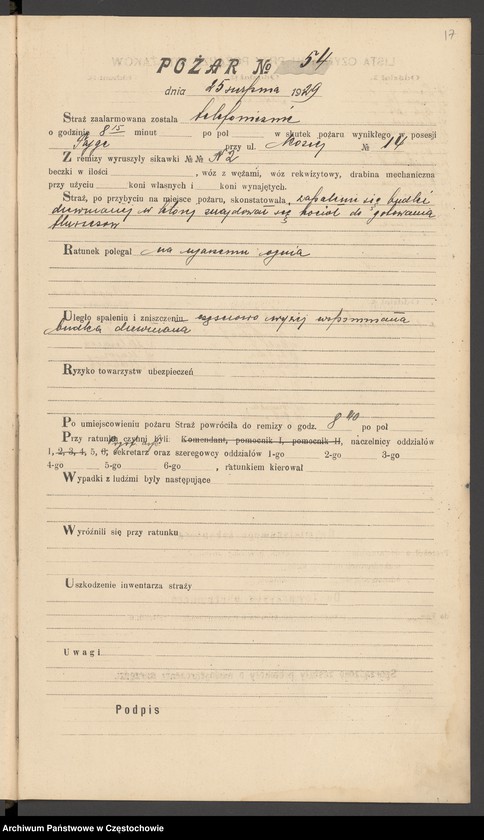 17
POŻAR № 54
dnia 25 sierpnia 1929
Straż zaalarmowana została telefonicznie
o godzinie 8 15 minut po poł w skutek pożaru wynikłego w posesji
przy ul. № 14
Z remizy wyruszyły sikawki №№ N 2
beczki w ilości , wóz z wężami, wóz rekwizytowy, drabina mechaniczna
przy użyciu koni własnych i koni wynajętych.
Straż, po przybyciu na miejsce pożaru, skonstatowała, zapalenie się budki
drewnianej w której znajdował się kocioł do gotowania
tłuszczów
Ratunek polegał na ugaszeniu ognia
Uległo spaleniu i zniszczeniu częściowo wyżej wspomniana
budka drewniana
Ryzyko towarzystw ubezpieczeń
Po umiejscowieniu pożaru Straż powróciła do remizy o godz. 8 40 po poł
Przy ratunku czynni byli: Komendant, pomocnik I, pomocnik II, naczelnicy oddziałów
1, 2, 3, 4, 5, 6, sekretarz oraz szeregowcy oddziałów 1-go 2-go 3-go
4-go 5-go 6-go , ratunkiem kierował
Wypadki z ludźmi były następujące
Wyróżnili się przy ratunku
Uszkodzenie inwentarza straży
Uwagi
Podpis
Archiwum Państwowe w Częstochowie